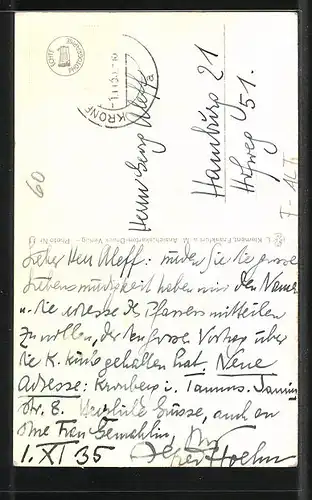 KRONB
-1.11.35
Herrn Georg Aleff
Hamburg 21
Hofweg 51.
60
F-ALT
L. Klement, Frankfurt a. M. Ansichtskarten-Gross-Verlag - Photo Nr.
Lieber Herr Aleff: würden Sie die grosse
Liebenswürdigkeit haben mir den Namen
u. die Adresse des Pfarrers mitteilen
zu wollen, der den grossen Vortrag über
die K. gehalten hat. Neue
Adresse: Kronberg i. Taunus. Taunus
str. 8. Herzliche Grüsse, auch an
Ihre Frau Gemahlin, Ihr
1. XI 35